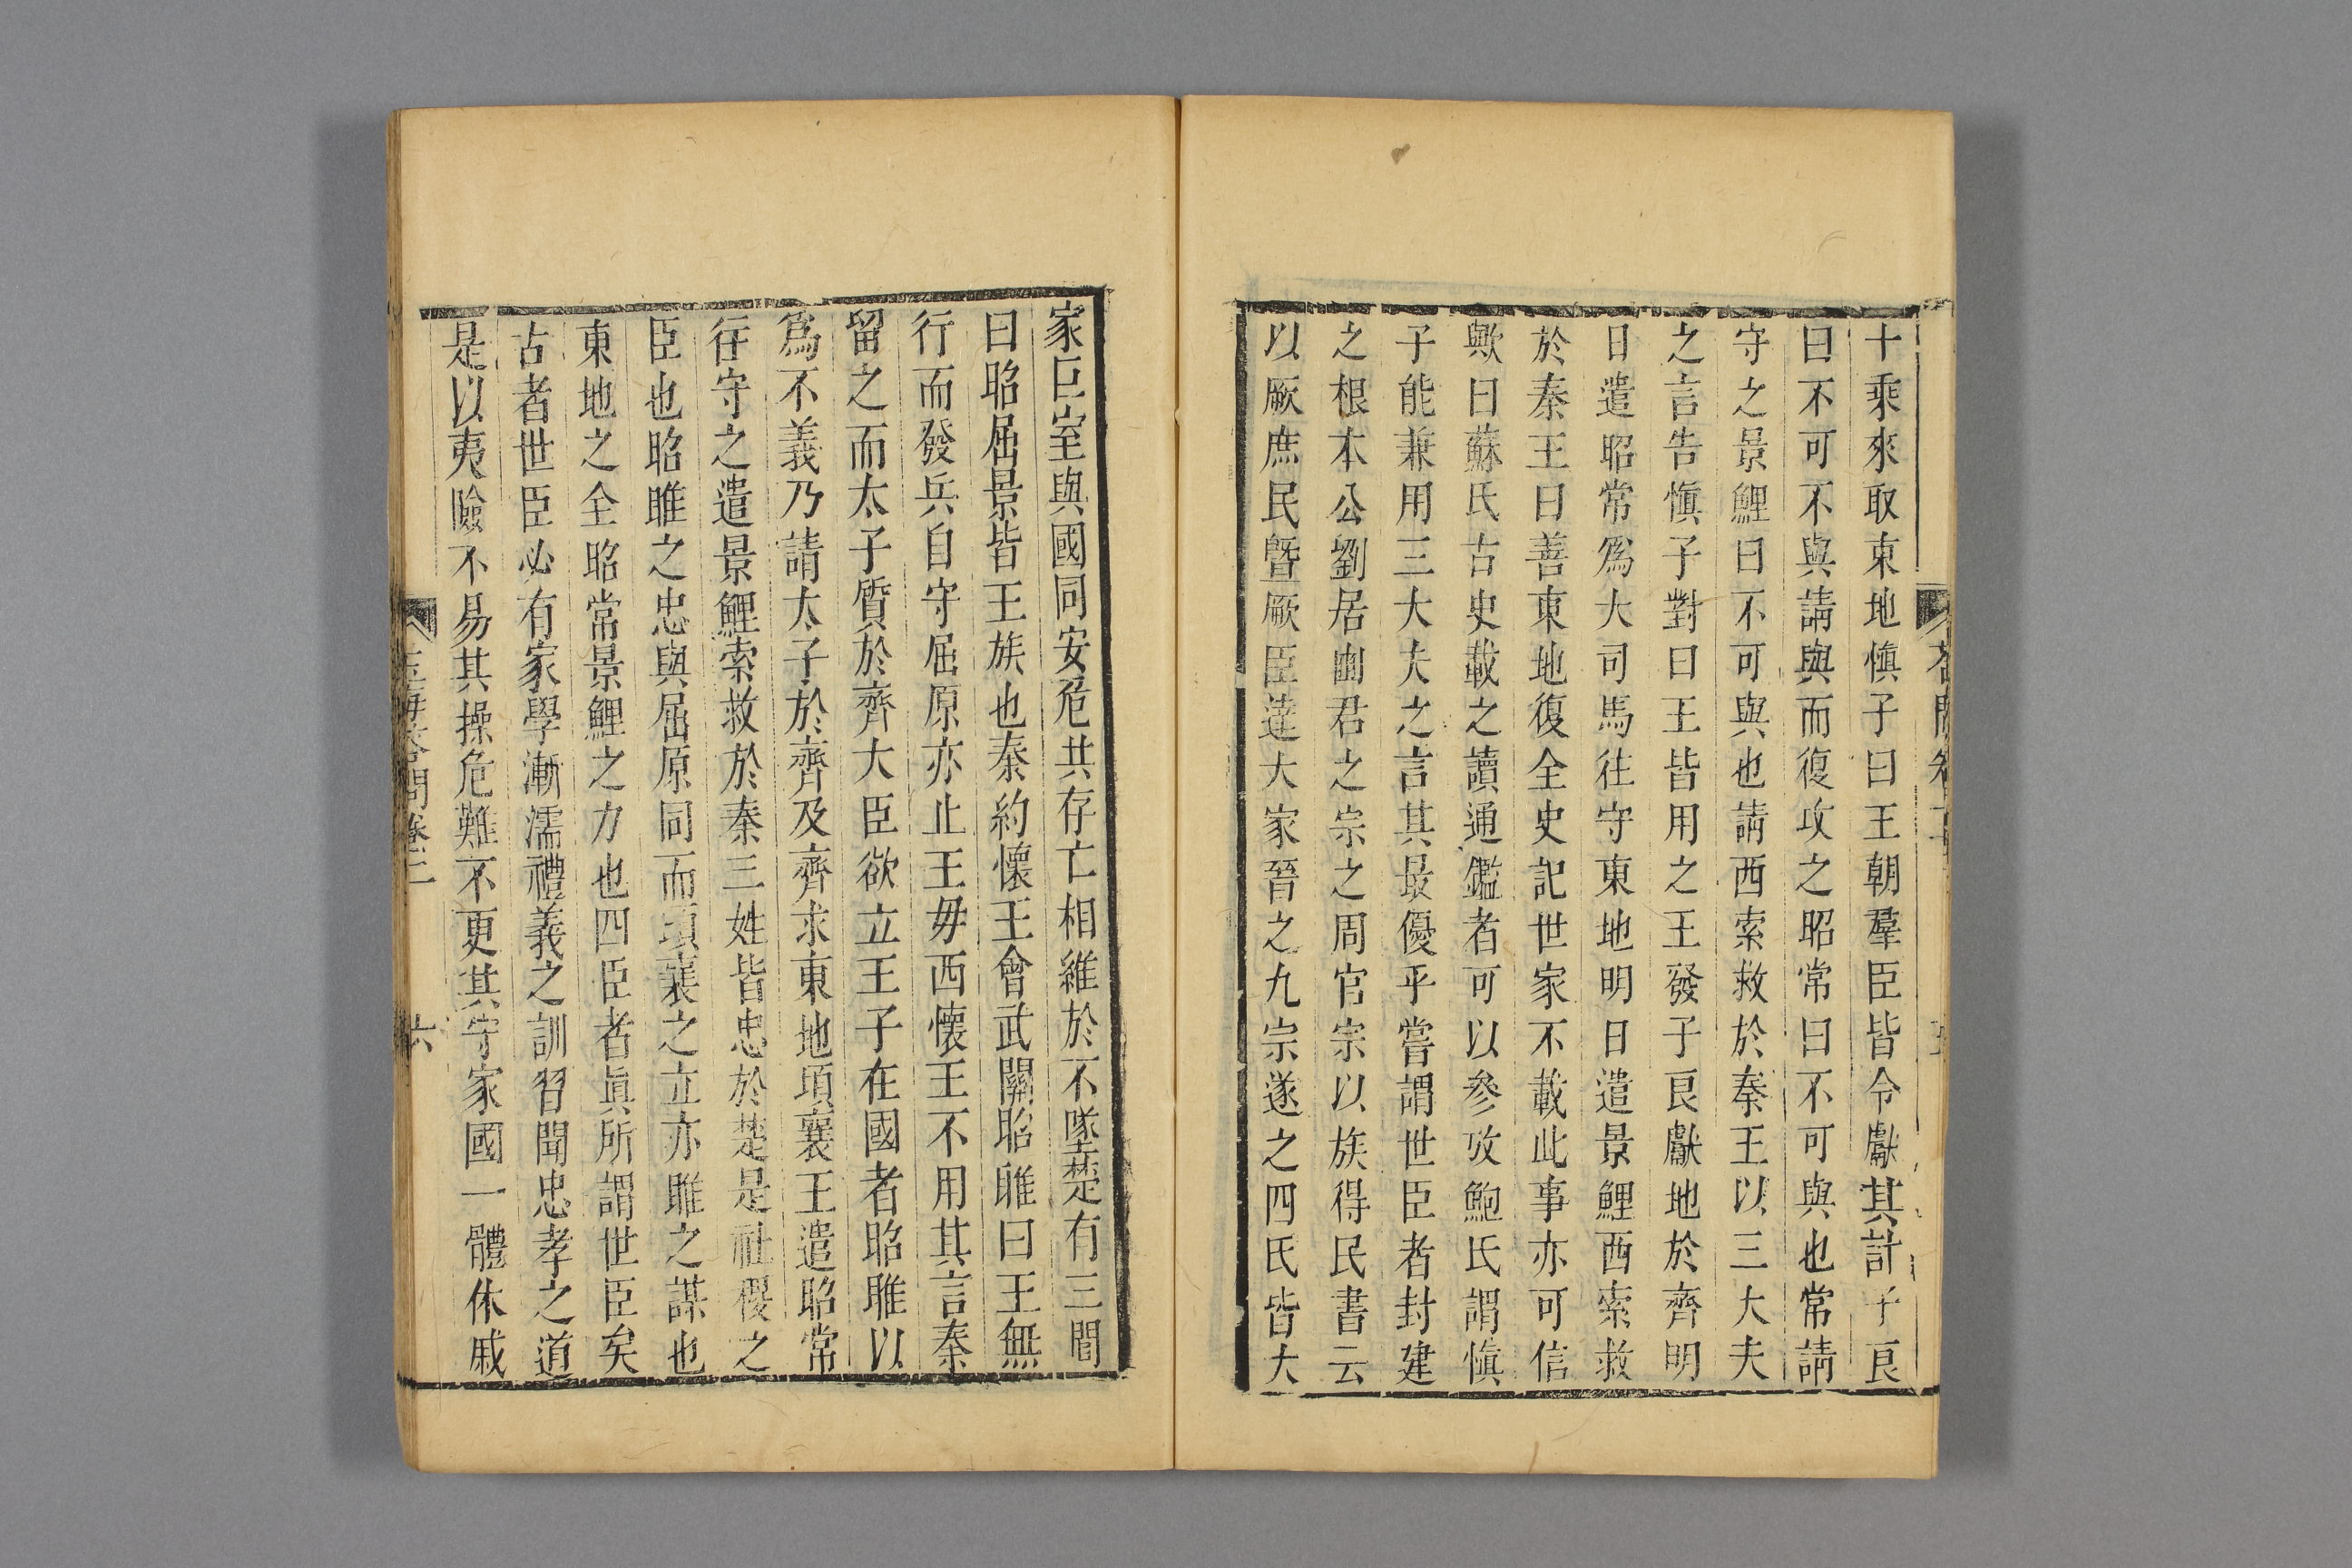 十乘來取東地愼子曰王朝羣臣皆令獻其計子良
曰不可不與請與而復攻之昭常曰不可與也常請
守之景鯉曰不可與也請西索救於秦王以三大夫
之言告愼子對曰王皆用之王發子良獻地於齊明
日遣昭常爲大司馬往守東地明日遣景鯉西索救
於秦王曰善東地復全史記世家不載此事亦可信
歟曰蘇氏古史載之讀通鑑者可以參攷鮑氏謂愼
子能兼用三大夫之言其最優乎嘗謂世臣者封建
之根本公劉居豳君之宗之周官宗以族得民書云
以厥庶民曁厥臣達大家晉之九宗遂之四氏皆大
家巨室與國同安危共存亡相維於不墜楚有三閭
曰昭屈景皆王族也秦約懷王會武關昭雎曰王無
行而發兵自守屈原亦止王毋西懷王不用其言秦
留之而太子質於齊大臣欲立王子在國者昭雎以
爲不義乃請太子於齊及齊求東地頃襄王遣昭常
往守之遣景鯉索救於秦三姓皆忠於楚是社稷之
臣也昭雎之忠與屈原同而頃襄之立亦雎之謀也
東地之全昭常景鯉之力也四臣者眞所謂世臣矣
古者世臣必有家學漸濡禮義之訓習聞忠孝之道
是以夷險不易其操危難不更其守家國一體休戚
六